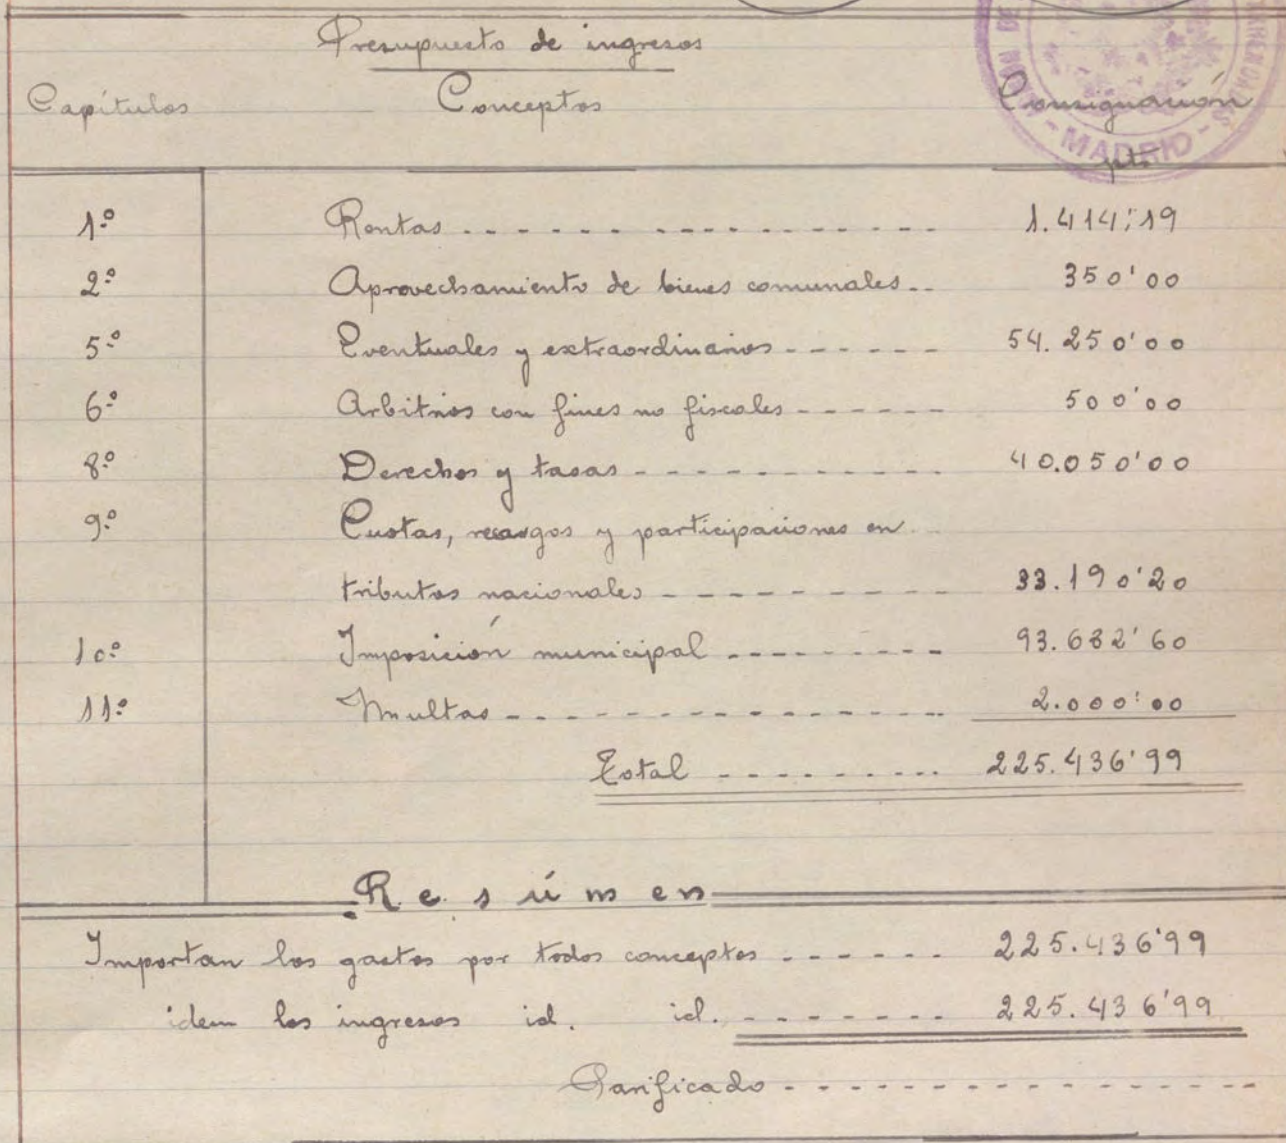 Presupuesto de ingresos
Capítulos Conceptos Consignación
MADRID
pts.
1º Rentas 1.414'19
2º Aprovechamiento de bienes comunales 350'00
5º Eventuales y extraordinarios 54.250'00
6º Arbitrios con fines no fiscales 500'00
8º Derechos y tasas 40.050'00
9º Cuotas, recargos y participaciones en
tributos nacionales 33.190'20
10º Imposición municipal 93.682'60
11º Multas 2.000'00
Total 225.436'99
Resúmen
Importan los gastos por todos conceptos 225.436'99
idem los ingresos id. id. 225.436'99